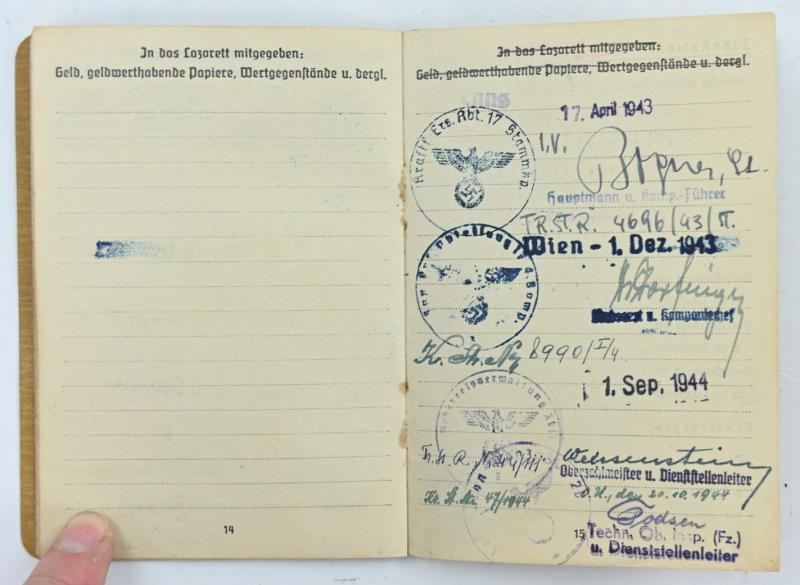 In das Lazarett mitgegeben:
Geld, geldwerthabende Papiere, Wertgegenstände u. dergl.
14
In das Lazarett mitgegeben:
Geld, geldwerthabende Papiere, Wertgegenstände u. dergl.
17. April 1943
Kraftf. Ers. Abt. 17 Stammkp.
I.V.
Hauptmann u. Komp.-Führer
TR.St.R. 4696/43/II.
Wien - 1. Dez. 1943
u. Kompaniechef
8990/I/4
1. Sep. 1944
Tr. St. R. No
Oberzahlmeister u. Dienststellenleiter
Kr. St. Nr. 47/1944
O.U., den 20.10.1944
15
Techn. Ob. Insp. (Fz.)
u. Dienststellenleiter